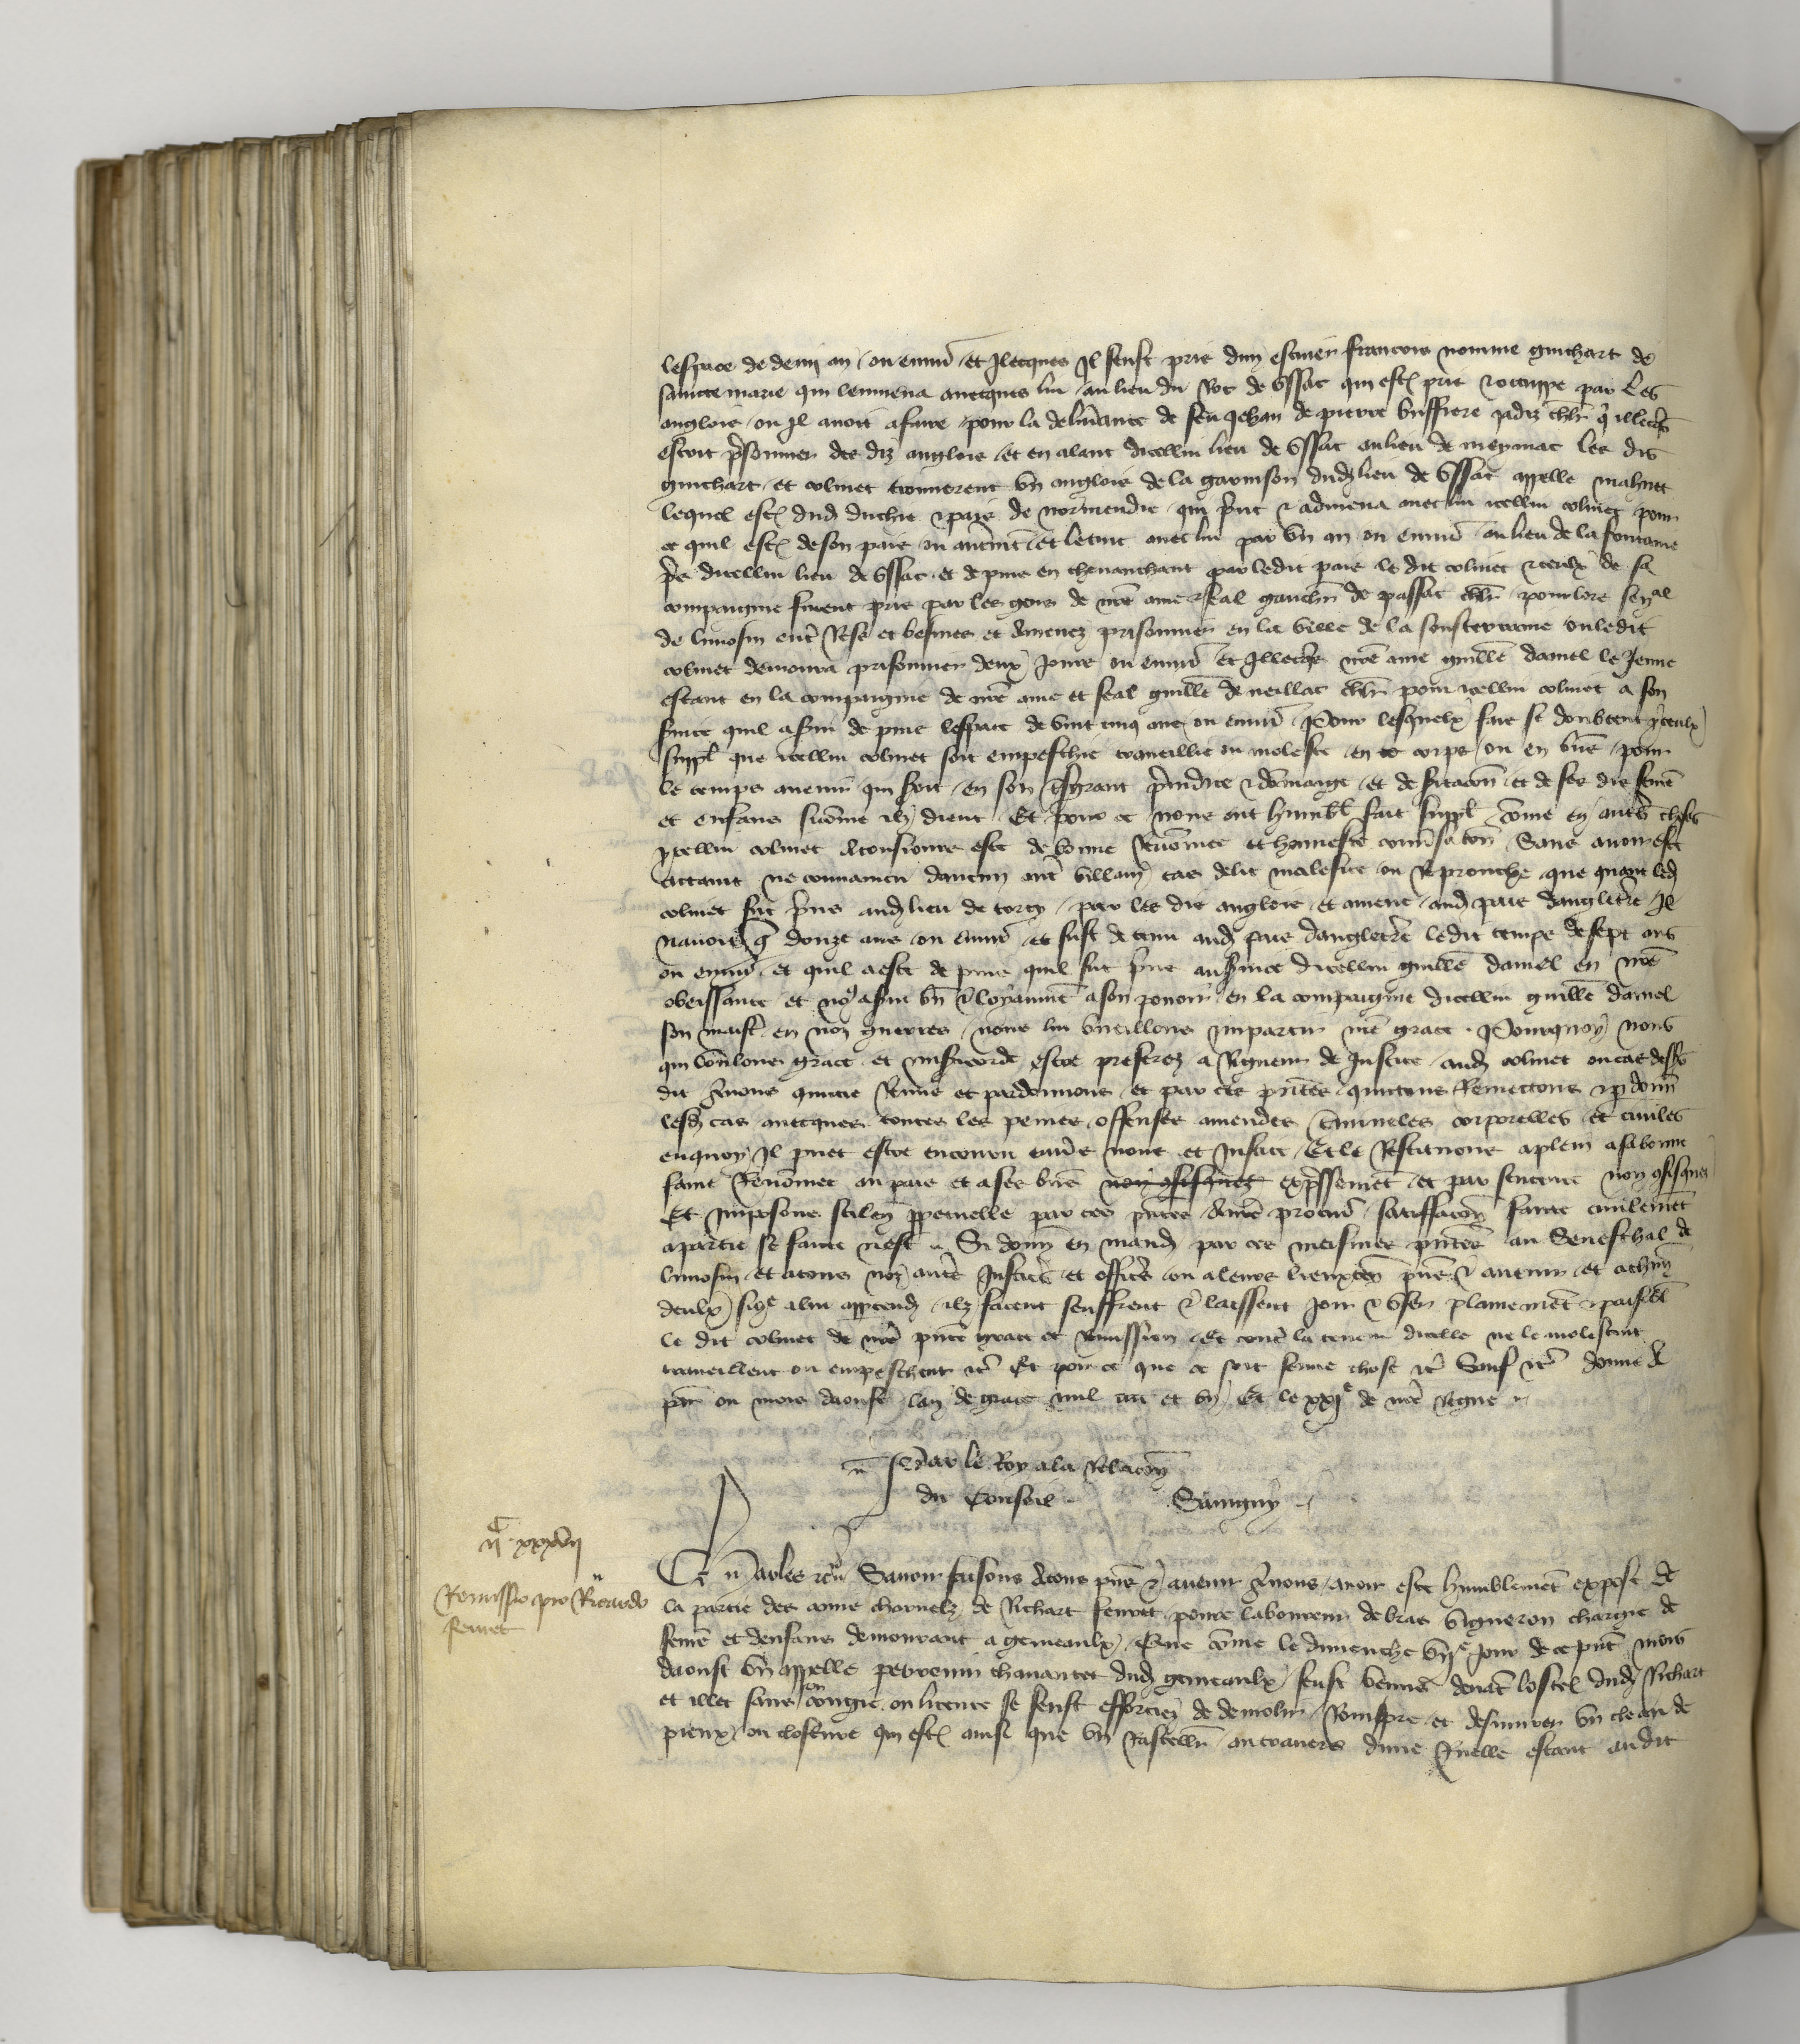 lespace de demi an ou enuiron et Ilecques Il feust pris dun escuier francois nomme guichart de
saincte marie qui lenmena auecques lui au lieu du Roc de Ussac qui est pris et occuppe par les
anglois ou Il auoit a faire pour la deliurance de feu Jehan de pierre buffiere jadiz chlr qui illecques
estoit prisonnier des diz anglois et en alant dicellui lieu de Ussac au lieu de meymac les dis
guichart et colinet trouuerent un anglois de la garnison dud lieu de Ussac appelle mahuet
lequel est dud duchie et pais de normendie qui print et admena auec lui icellui colinet pour
ce quil est de son pais ou autrement et le tint auec lui par un an ou enuiron ou lieu de la fontaine
pres dicellui lieu de Ussac et depuis en cheuauchant par ledit pais le dit colinet et ceulx de sa
compaignie furent pris par les gens de nre ame et feal gaucher de passac chlr pour lors senal
de limosin entre et besines et amenez prisonnier en la ville de la sousterraine ou ledit
colinet demoura prisonnier deux jours ou enuiron Et Illecques nre ame guille daniel le Jeune
estant en la compaignie de nre ame et feal guille de neillac chlr print icellui colinet a son
seruice quil a serui depuis lespace de vint cinq ans ou enuiron Pour lesquelx fais se doubtent iceulx
suppl que icellui colinet soit empeschie trauaillie ou moleste en corps ou en biens pour
le temps auenir qui seroit en son tresgrant preiudice et dommaige et de et de ses dis femme
et enfans si comme ilz dient Et pour ce nous ont humbl fait suppl comme en autres choses
icellui colinet ait tousiours este de bonne renommee et honneste conuersacion Sans auoir este
actaint ne conuaincu daucun autre villain cas delit malefice ou Reprouche que quant led
colinet fut prins aud lieu de torcy par les dis anglois et amene aud pais dangleterre Il
nauoit que douze ans ou enuiron et fust detenu aud pais dangleterre ledit temps de sept ans
ou enuiron et quil a este depuis quil fut prins au seruice dicellui guille daniel en nre
obeissance et nous a serui bien et loyaument a son pouoir en la compaignie dicellui guille daniel
son maistre en noz guerres nous lui vueillons impartir nre grace Pourquoy nous
qui voulons grace et misericorde estre preferez a Rigueur de Justice aud colinet ou cas dessus
dit auons quictie Remis et pardonnons et par ces presentes quictons Remettons et pardonn
lesd cas auecques toutes les peines offenses amendes criminelles corporelles et ciuiles
enquoy Il puet estre encouru enuers nous et Justice Et le Restituons a plein a sa bonne
fame Renommee au pais et a ses biens non confisquez expressement et par sentence non confisquez
Et imposons silence perpetuelle par ces presentes a nre procureur satiffacion faicte ciuilement
a partie se faicte nest Si donn en mand par ces meismes presentes au Seneschal de
limosin et a tous noz autres Justic et offic ou a leurs lieuxten presens et auenir et a chun
deulx sicome a lui apptendra quilz facent seuffrent et laissent Joir et user plainement et paisibl
le dit colinet de nre presente grace et remission Et contre la teneur dicelle ne le molestent
trauaillent ou empeschent etc Et pour ce que ce soit ferme chose etc Sauf etc donne a
paris ou mois daoust lan de grace mil cccc et un Et le XXIe de nre Regne
Par le Roy a la Relacion
du Conseil Sauigny
iic xxxvii
Remissio pro Ricardo
feuret
Charles etc Sauoir faisons a tous presens et auenir a nous auoir este humblement expose de
la partie des amis charnelz de Richart feuret poure laboureur de bras vigneron chargie de
femme et denfans demourant a gemeaulx Que comme le dimenche viie jour de ce present mois
daoust un appelle perrenin chauancet dud gemeaulx feust venue deuant lostel dud Richart
et illec sans son congie ou licence se feust efforciez de demolir Rompre et dessirer un cloan de
pieux ou closture qui est ainsi que un au trauers dune Ruelle estant au dit